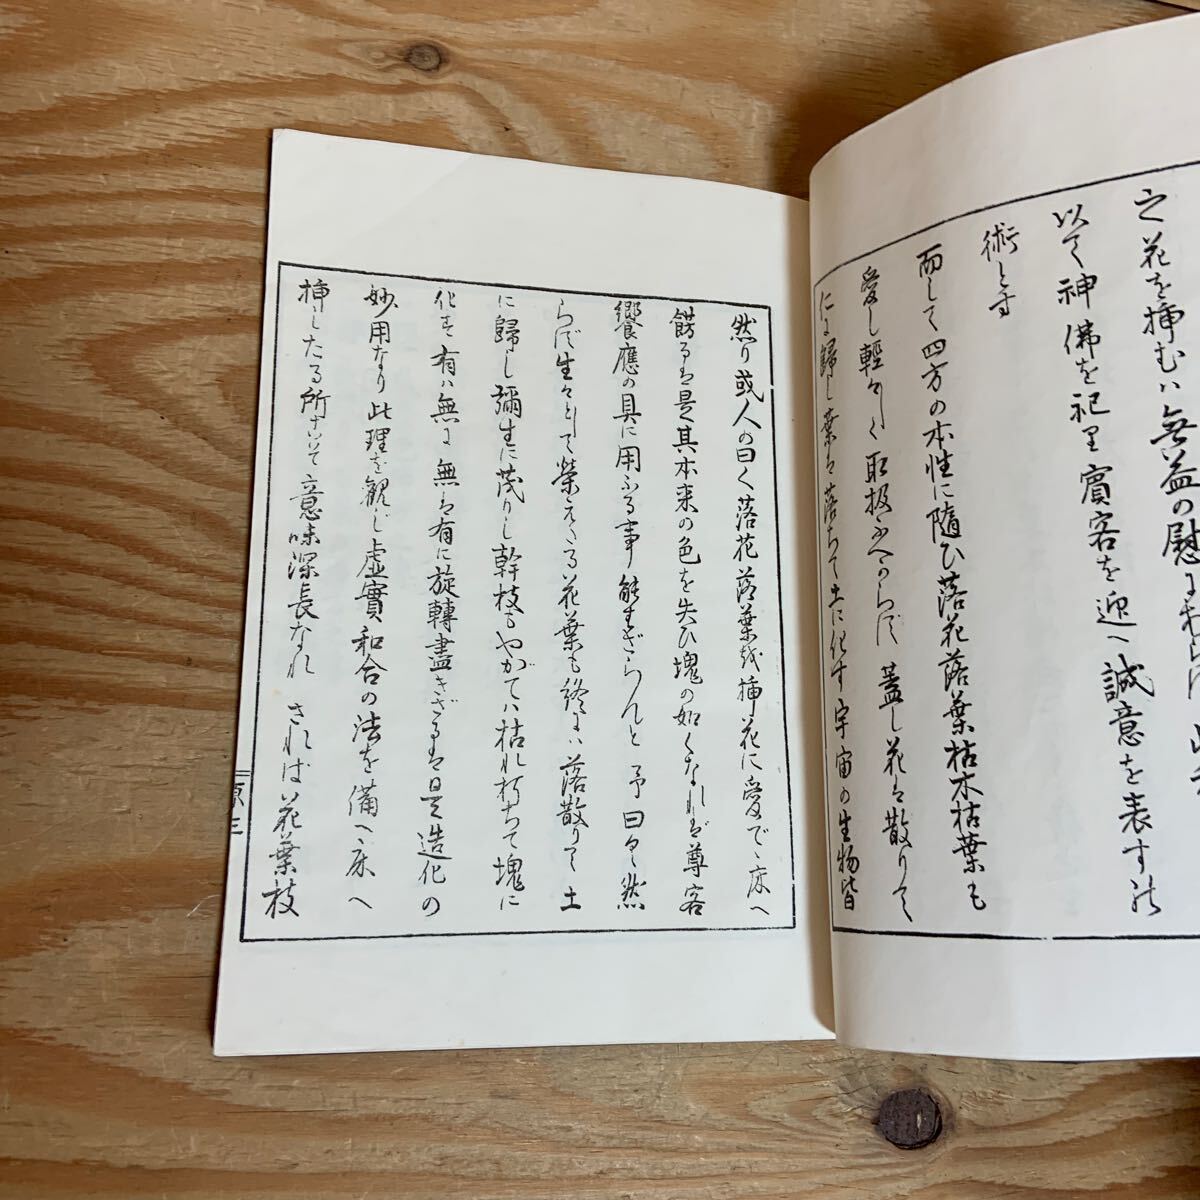 之花を挿むハ無益の慰にわらは
以て神佛を祀里賓客を迎へ誠意を表す能
術とす
而して四方の本性に隨ひ落花落葉枯木枯葉も
愛し輕々しく取扱ふべからず 蓋し花は散りて
仁に歸し葉は落ちて土に化す宇宙の生物皆
然り或人の曰く落花落葉越挿花に愛で床へ
餝るは是其本来の色を失ひ塊の如くなれば尊客
饗應の具に用ふる事能まぎらんと 予曰く然
らず生々として榮えたる花葉も終にハ落散りて土
に歸し彌生に茂りし幹枝もやがてハ枯れ朽ちて塊に
化す有ハ無に無は有に旋轉盡きざるは是造化の
妙用なり此理を観し虚實和合の法を備へ床へ
挿したる所尤も意味深長なれ されば花葉枝